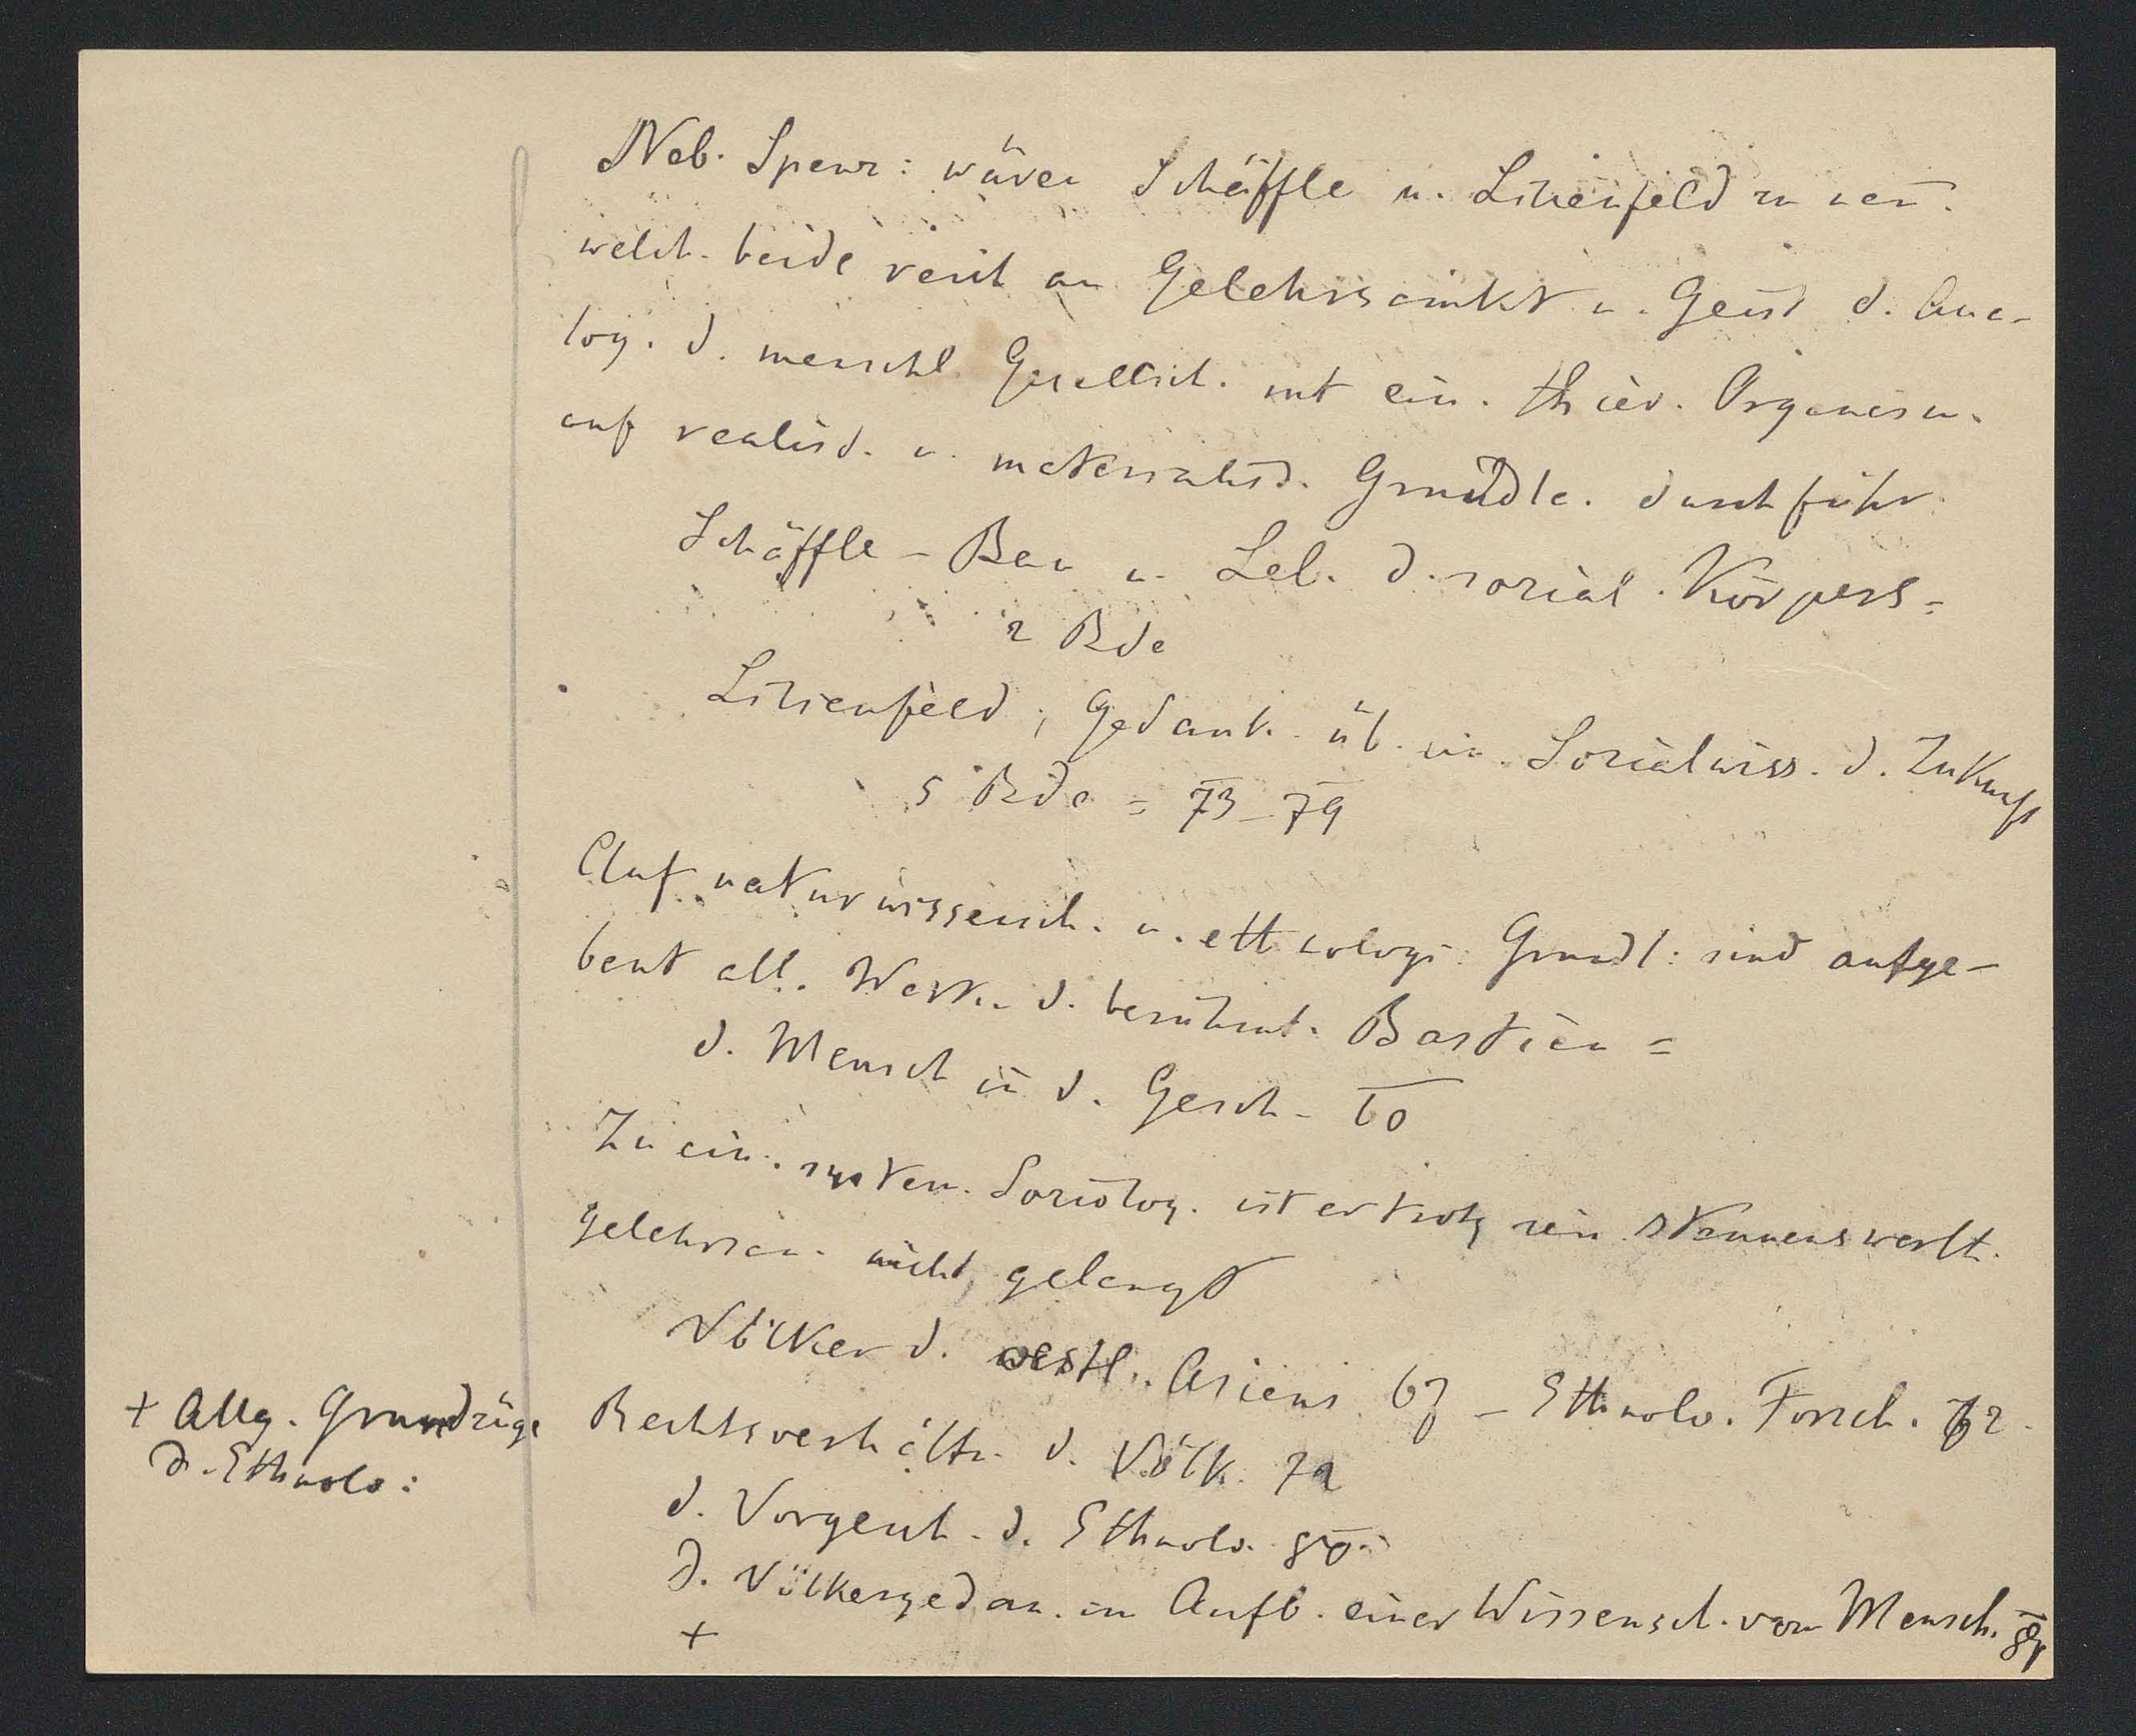 Neb. Spenz: wären Schäffle u. Lilienfeld zu nen̄.
welch. beide reich an Gelehrsamkt u. Geist d. Ana-
log. d. menschl. Gesellsch. mit ein. thier. Organism.
auf realist. u. materialist. Grundla. durchführ.
Schäffle – Bau u. Leb. d. sozial. Körpers =
2 Bde
Lilienfeld; Gedank. üb. ein. Sozialwiss. d. Zukunft
5 Bde = 73–79
Auf naturwissensch. u. ethnolog. Grundl: sind aufge-
baut all. Werke d. berühmt. Bastian =
d. Mensch in d. Gesch – 60
Zu ein. system. Soziolog. ist er trotz sein. staunenswerth.
Gelehrsam. nicht gelangt
Völker d. östl. Asiens 67 – Ethnolo. Forsch. 72.
Rechtsverhältn. d. Völk. 72
d. Vorgesch. d. Ethnolo. 80.
d. Völkergedan. im Aufb. einer Wissensch. vom Mensch. 81
+
+ Allg. Grundzüge
d. Ethnolo: